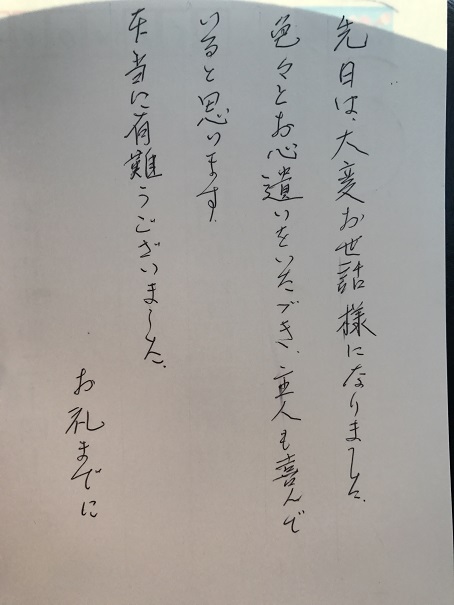 先日は、大変お世話様になりました。
色々とお心遣いをいただき、主人も喜んで
いると思います。
本当に有難うございました。
お礼までに